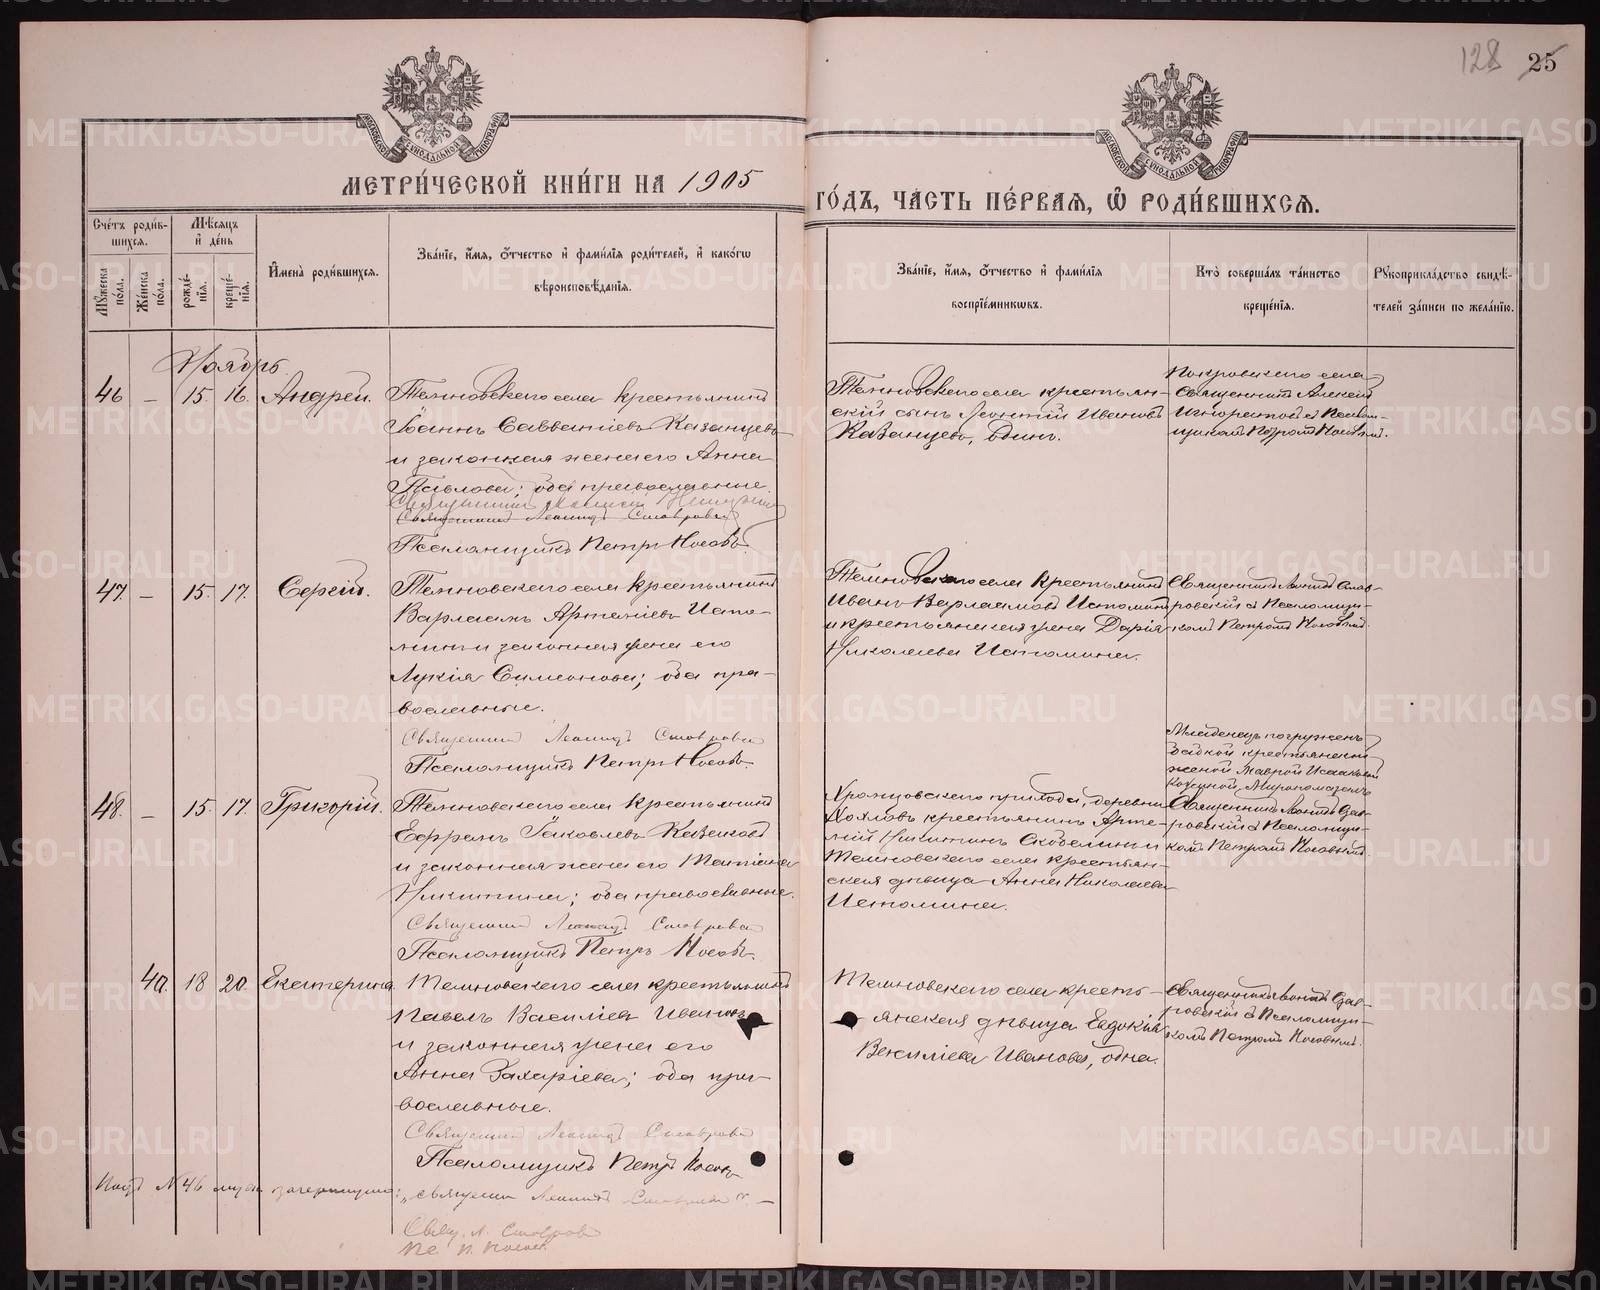 128 25
МЕТРИ́ЧЕСКОЙ КНИ́ГИ НА 1905 ГО́ДЪ, ЧА́СТЬ ПЕ́РВАЯ, Ѡ РОДИ́ВШИХСЯ.
Сче́тъ роди́вшихся.
Мꙋ́жеска по́ла.
Же́нска по́ла.
Мѣ́сяцъ и́ де́нь
рожде́нїя.
креще́нїя.
И́мена̀ роди́вшихся.
Зва́нїе, и́мя, о́тчество и́ фами́лїя роди́телей, и́ како́гѡ
вѣроисповѣ́данїя.
Зва́нїе, и́мя, о́тчество и́ фами́лїя
воспрїе́мникѡвъ.
Кто̀ соверша́лъ та́инство
креще́нїя.
Рꙋкоприкла́дство свидѣ́телей за́писи по жела́нїю.
Ноябрь.
46 – 15. 16. Андрей.
Темновскаго села крестьянинъ
Іоаннъ Савватіевъ Казанцевъ
и законная жена его Анна
Павлова; оба православные.
Священникъ Леонидъ Ставровскій
Псаломщикъ Петръ Носовъ.
Темновскаго села крестьян-
скій сынъ Леонтій Ивановъ
Казанцевъ, одинъ.
Покровскаго села
Священникъ Алексій
съ Псалом-
щикомъ Петромъ Носовымъ.
47. – 15. 17. Сергій.
Темновскаго села крестьянинъ
Варлаамъ Артеміевъ Исто-
минъ и законная жена его
Лукія Симеонова; оба пра-
вославные.
Священникъ Леонидъ Ставровскій
Псаломщикъ Петръ Носовъ.
Темновскаго села крестьянинъ
Иванъ Варлаамовъ Истоминъ
и крестьянская жена Дарія
Николаева Истомина.
Священникъ Леонидъ Став-
ровскій съ Псаломщи-
комъ Петромъ Носовымъ.
48. – 15. 17. Григорій.
Темновскаго села крестьянинъ
Ефремъ Іаковлевъ Казаковъ
и законная жена его Татіана
Никитина; оба православные.
Священникъ Леонидъ Ставровскій
Псаломщикъ Петръ Носовъ.
прихода, деревни
крестьянинъ Арте-
мій Никитинъ Скобелинъ и
Темновскаго села крестьян-
ская дѣвица Анна Николаева
Истомина.
Младенецъ погруженъ
бабкой крестьянской
женой Маврой Исааковой
Миропомазанъ
Священникъ Леонидъ Став-
ровскій съ Псаломщи-
комъ Петромъ Носовымъ.
40. 18 20. Екатерина.
Темновскаго села крестьянинъ
Павелъ Василіевъ Ивановъ
и законная жена его
Анна Захаріева; оба пра-
вославные.
Священникъ Леонидъ Ставровскій
Псаломщикъ Петръ Носовъ
Темновскаго села кресть-
янская дѣвица Евдокія
Василіева Иванова, одна.
Священникъ Леонидъ Став-
ровскій съ Псаломщи-
комъ Петромъ Носовымъ.
Подъ № 46 зачеркнуто: „священникъ Леонидъ Ставровскій“. –
Свящ. Л. Ставровскій
Пс. П. Носовъ.
METRIKI.GASO-URAL.RU